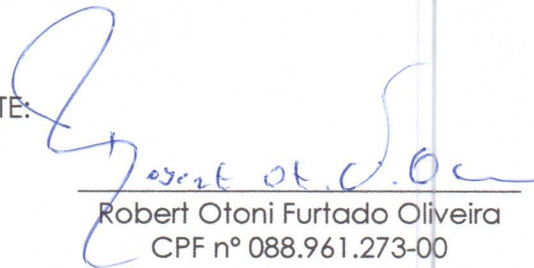 TE:
Robert Ot. F. O
Robert Otoni Furtado Oliveira
CPF nº 088.961.273-00